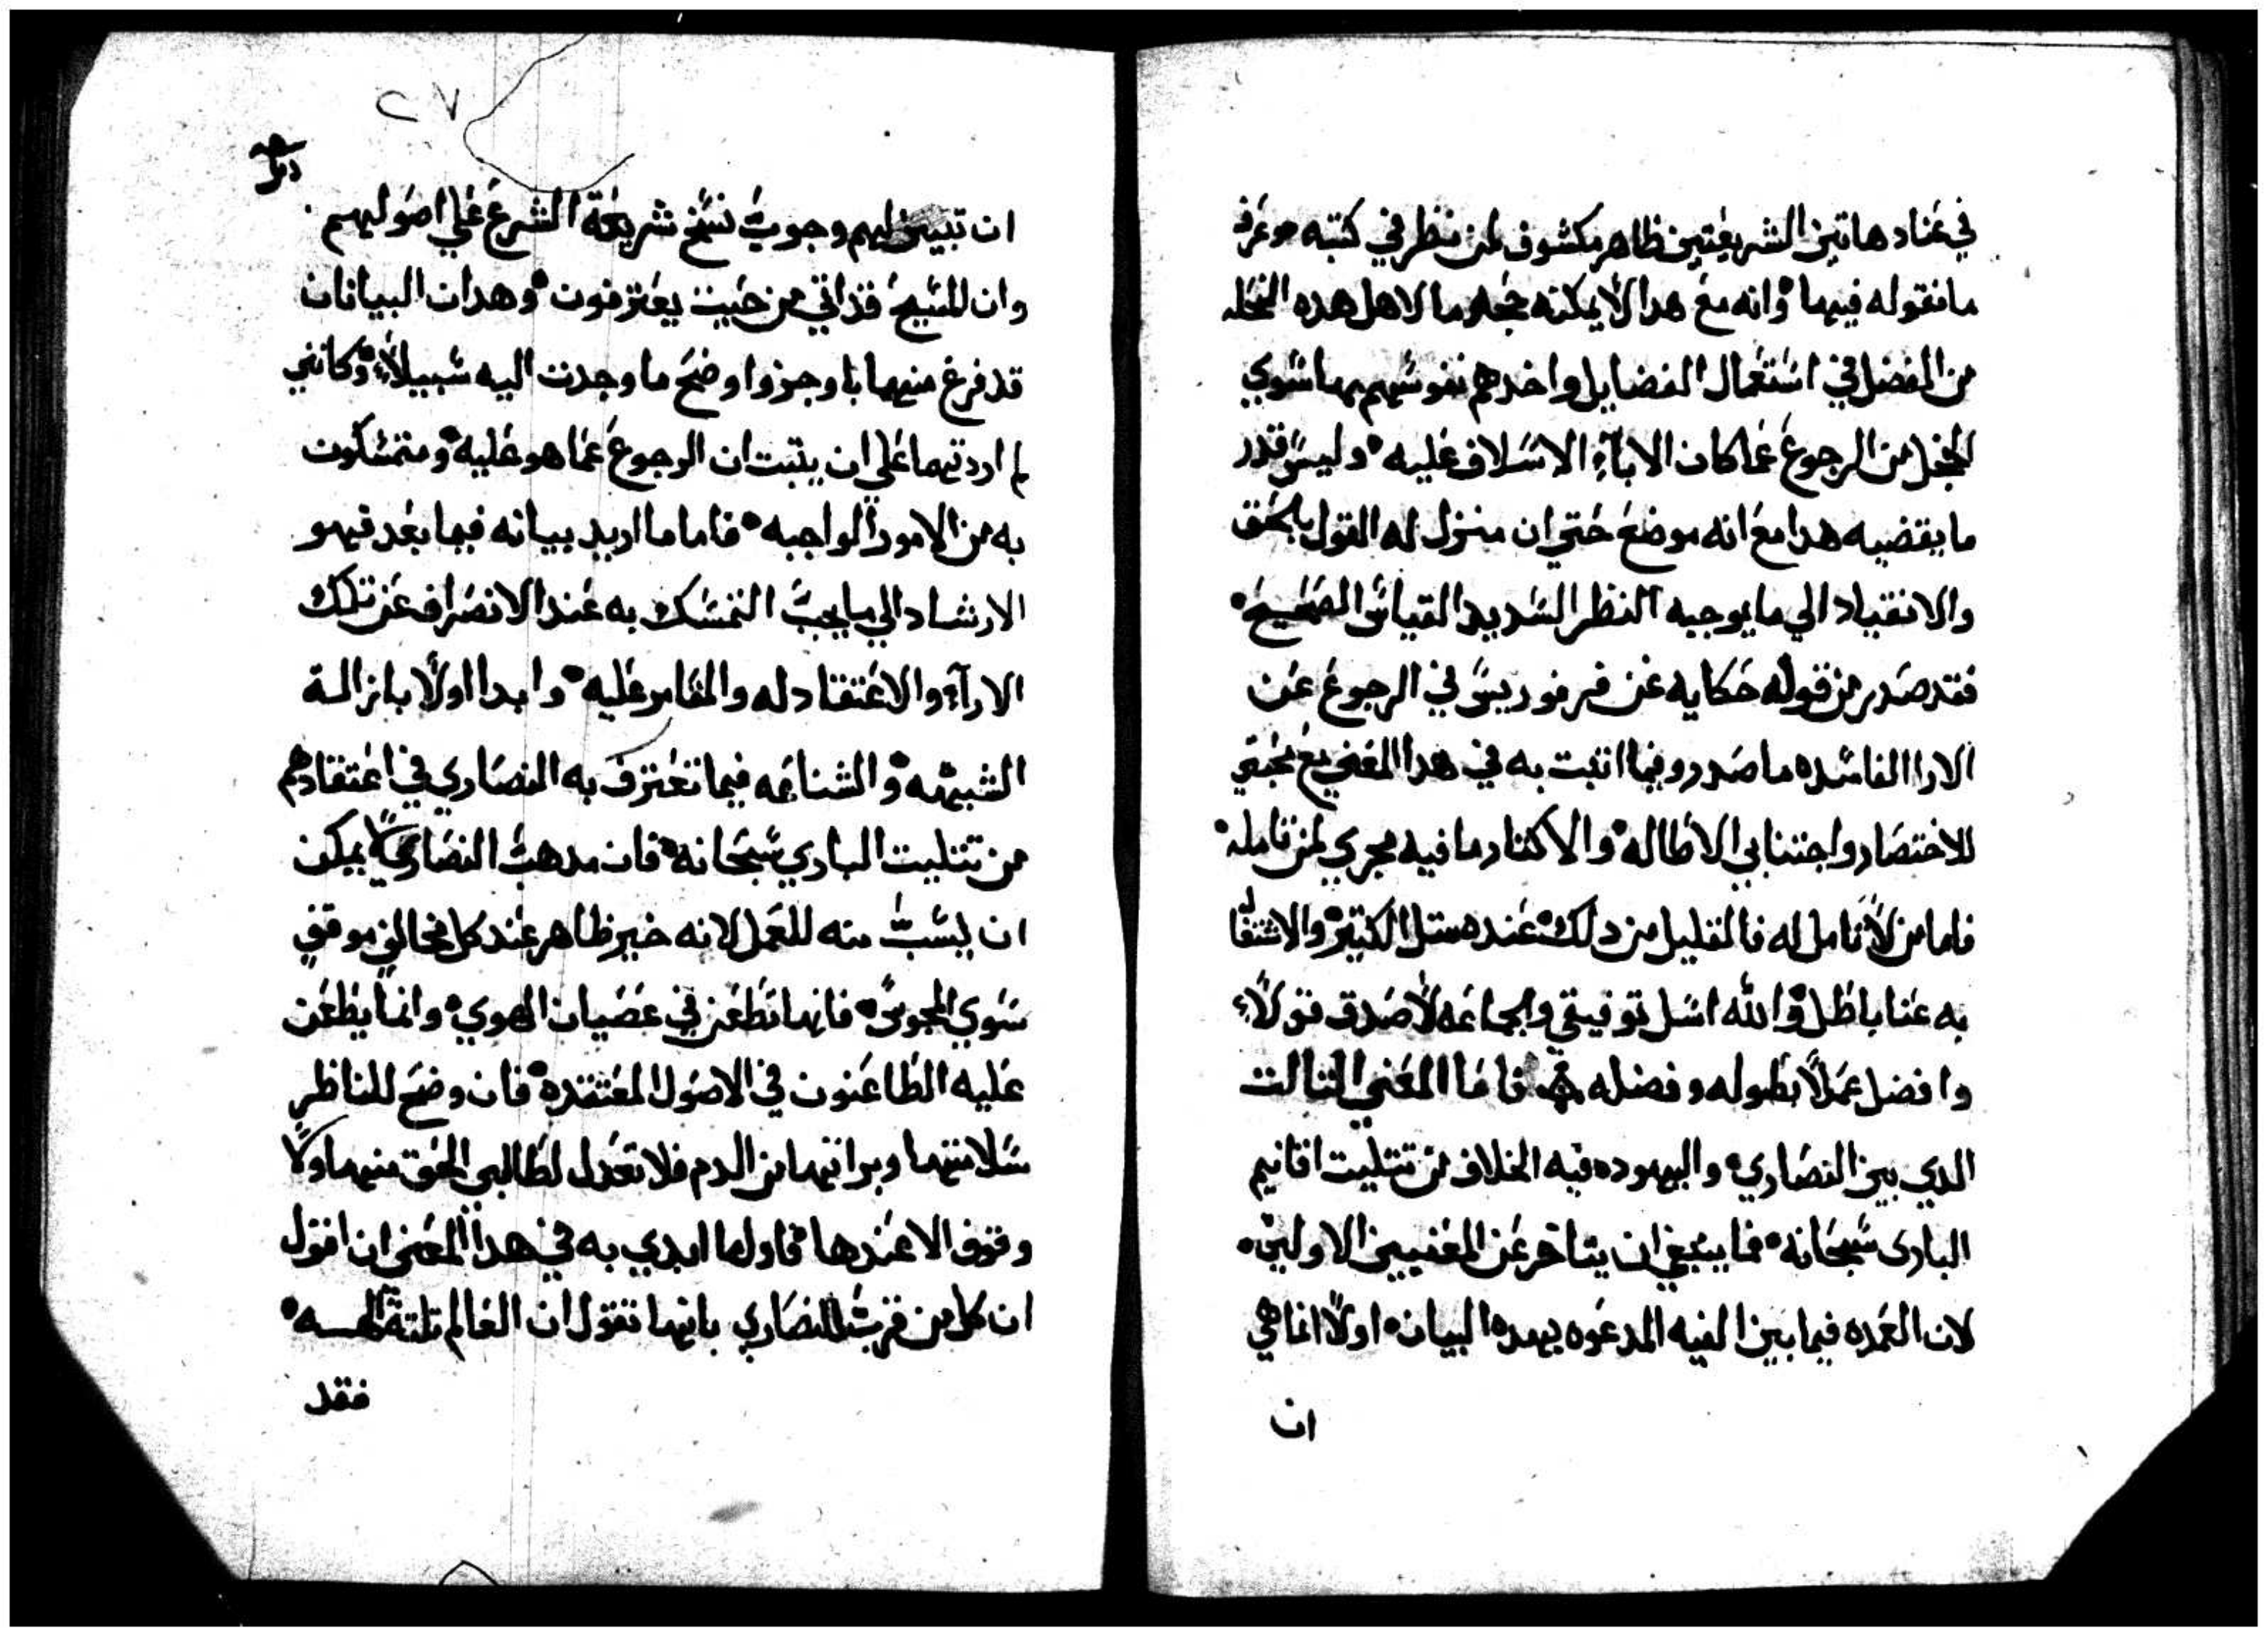 في عناد هاتين الشريعتين ظاهر مكشوف لمن ينظر في كتبه وعرف
ما نقوله فيها وانه مع هدا لا يمكنه جحد ما لاهل هده النحله
من الفضل في استعمال الفضايل واخدهم نفوسهم بها سوي
الخجل من الرجوع عما كان الابآء الاسلاف عليه وليس قدر
ما يقضيه هدا مع انه موضع حتي ان منزل له القول بالحق
والانقياد الي ما يوجبه النظر السديد القياس الصحيح
فقد صدر من قوله حكايه عن فرفوريس في الرجوع عن
الارا الفاسده ما صدر وفيما اتيت به في هدا المعني مع محبتي
للاختصار واجتنابي الاطاله والاكتار ما فيه مجري لمن تامله
فاما من لا تامل له فالقليل من دلك عنده متل الكتير والاشتغال
به عنا باطل والله اسل توفيقي والجماعه لاصدق قولاً
وافضل عملاً بطوله وفضله فاما المعني التالت
الدي بين النصاري واليهود فيه الخلاف من تتليت اقانيم
الباري سبحانه فما ينبغي ان يتاخر عن المعنيين الاولين
لان العمده فيما بين الفيه المدعوه بهده البيان اولاً انما هي
ان
٢٧
ان تبين لهم وجوب نسخ شريعة الشرع علي اصوليهم
وان المسيح قد اتي من حيت يعترفون وهدان البيانان
قد فرغ منهما باوجز واوضح ما وجدت اليه سبيلاً وكانني
لم اردتهما علي ان يتبت ان الرجوع عما هو عليه ومتمسكون
به من الامور الواجبه فاما ما اريد بيانه فيما بعد فهو
الارشاد الي ما يجب التمسك به عند الانصراف عن تلك
الارآء والاعتقاد له والمقام عليه وابدا اولاً بازالة
الشبهه والشناعه فيما تعترف به النصاري في اعتقادهم
من تتليت الباري سبحانه فان مدهب النصاري لا يمكن
ان يسب منه للعمل لانه خير ظاهر عند كل مخالف موقفي
سوي المجوس فانها تطعن في عصيان الهوي وانما يطعن
عليه الطاعنون في الاصول المعتقده فان وضح للناظر
سلامتها وبراتها من الدم فلا تعدل لطالبي الحق منهما ولا
وقوف الا عندها فاول ما ابدي به في هدا المعني ان اقول
ان كل من قرب النصاري بانها تقول ان العالم تلتة الهه
فقد